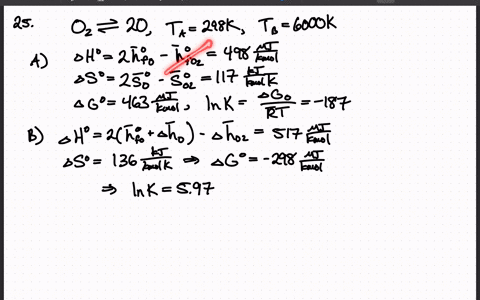 25. O₂ ⇌ 2O, T_A = 298K, T_B = 6000K
A) ΔH° = 2h̄°fO - h̄°fO2 = 498 MJ/kmol
ΔS° = 2S̄°O - S̄°O2 = 117 kJ/kmol K
ΔG° = 463 MJ/kmol, ln K = ΔG0/R̄T = -187
B) ΔH° = 2(h̄°fO + Δh̄O) - Δh̄O2 = 517 MJ/kmol
ΔS° = 136 kJ/kmol K ⇒ ΔG° = -298 MJ/kmol
⇒ ln K = 5.97